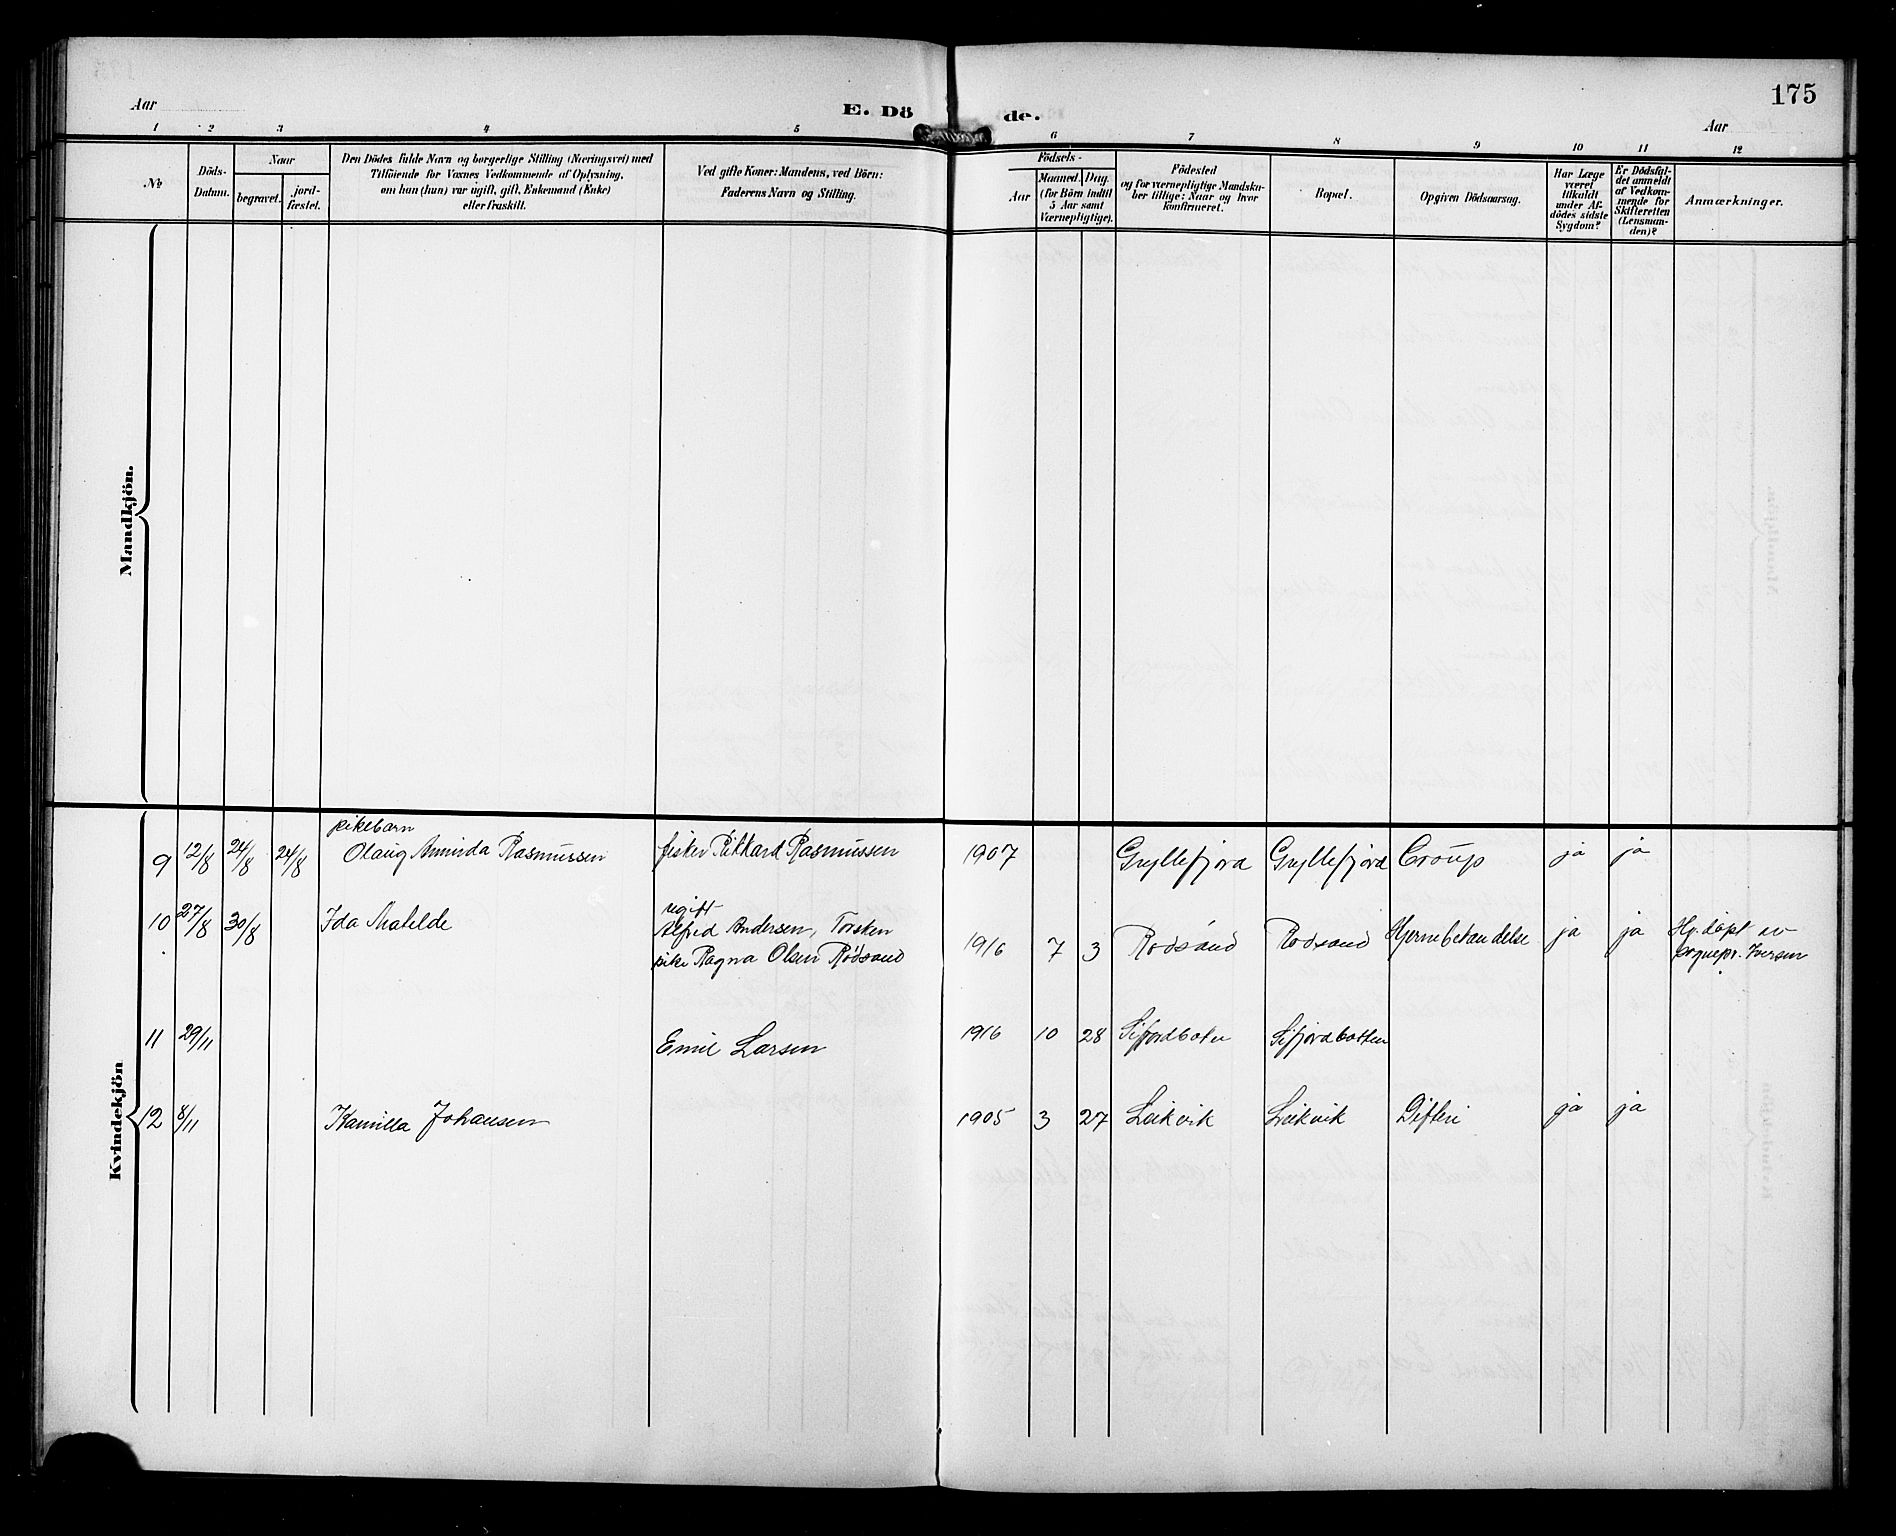 175
Aar
E. Dö de.
Aar
1 2 3 4 5 6 7 8 9 10 11 12
No
Döds-
Datum.
Naar
begravet.
jord-
fæstet.
Den Dödes fulde Navn og borgerlige Stilling (Næringsvei) med
Tilföiende for Voxnes Vedkommende af Oplysning,
om han (hun) var ugift, gift, Enkemand (Enke)
eller fraskilt.
Ved gifte Koner: Mandens, ved Börn:
Faderens Navn og Stilling.
Födsels-
Aar
Maaned. Dag.
(for Börn indtil
5 Aar samt
Værnepligtige).
Födested
og for værnepligtige Mandska-
ber tillige: Naar og hvor
konfirmeret.
Bopæl.
Opgiven Dödsaarsag.
Har Læge
været
tilkaldt
under Af-
dödes sidste
Sygdom?
Er Dödsfal-
det anmeldt
af Vedkom-
mende for
Skifteretten
(Lensman-
den)?
Anmærkninger.
Mandkjön.
Kvindekjön
pikebarn
9 12/8 24/8 24/8 Olaug Aminda Rasmussen fisker Rikkard Rasmussen 1907 Gryllefjord Gryllefjord Croup ja ja
ugift
10 27/8 30/8 Ida Matilde Alfred Andersen, Torsken 1916 7 3 Rødsand Rødsand Hjernebetændelse ja ja Hj. døpt av
pike Ragna Olsen Rødsand sognepr. Iversen
11 29/11 Emil Larsen 1916 10 28 Sifjordboten Sifjordbotten
12 8/11 Kamilla Johansen 1905 3 27 Leikvik Leikvik Difteri ja ja